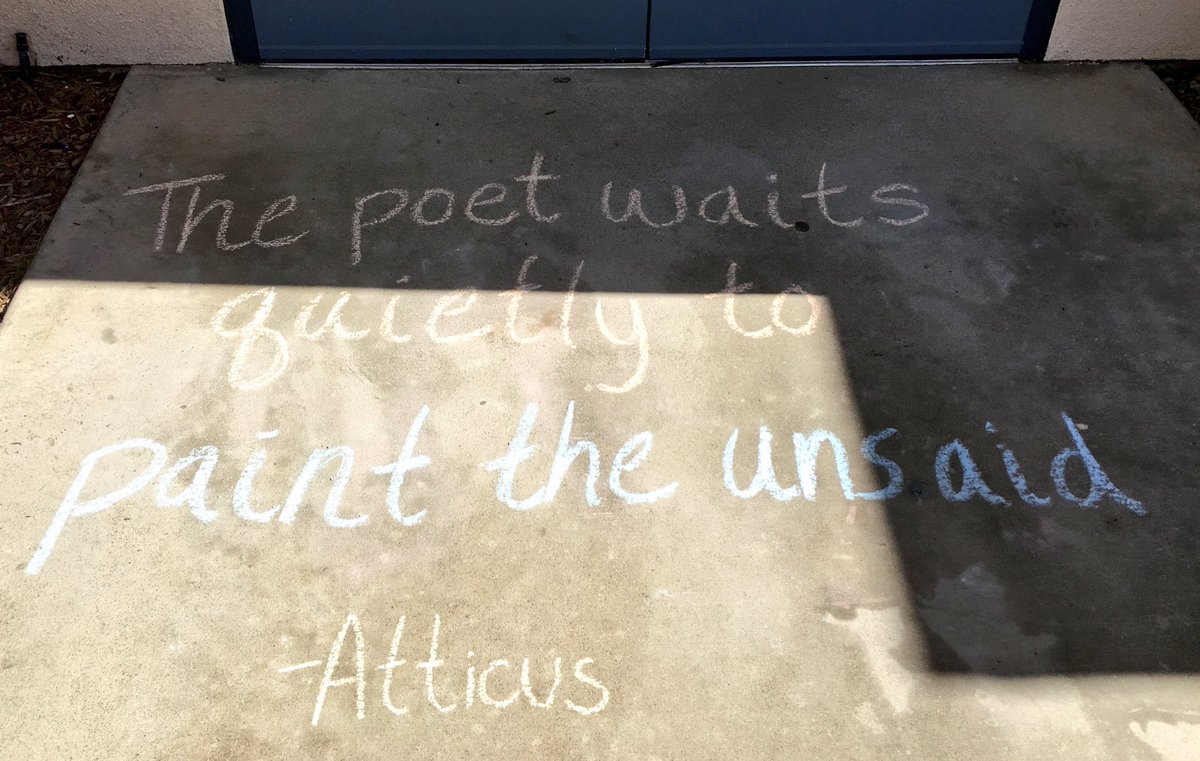 The poet waits
quietly to
paint the unsaid
-Atticus